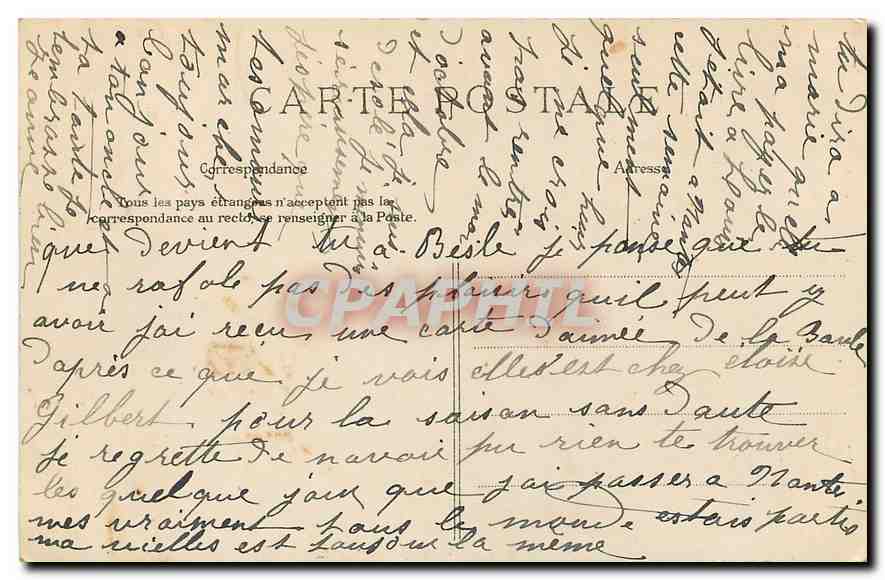 CARTE POSTALE
Correspondance
Adresse
Tous les pays étrangers n'acceptent pas la
correspondance au recto, se renseigner à la Poste.
CPAPHIL
que devient tu a Besle je panse que tu
ne rafole pas des plaisirs quil peut y
avoir jai recu une carte d'aimée de la Baule
d'après ce que je vois elle s'est chez eloise
Gilbert pour la saison sans daute
je regrette de navoir pu rien te trouver
les quelque jour que jai passer a Nante
mes vraiment tous le monde estais partis
ma vielles est tousour la même
tu dira a
marie quelle
ma payer le
livre a Louis
jetait a Nantes
cette semaine
seulment
quelque heur
je ne crois
pas rentre
avant le mois
d'octobre
et cela je suis
jespere que
les amour
marche
toujour
bonjour
a ton oncle et a
ta tante je
tembrasse bien
Jeanne